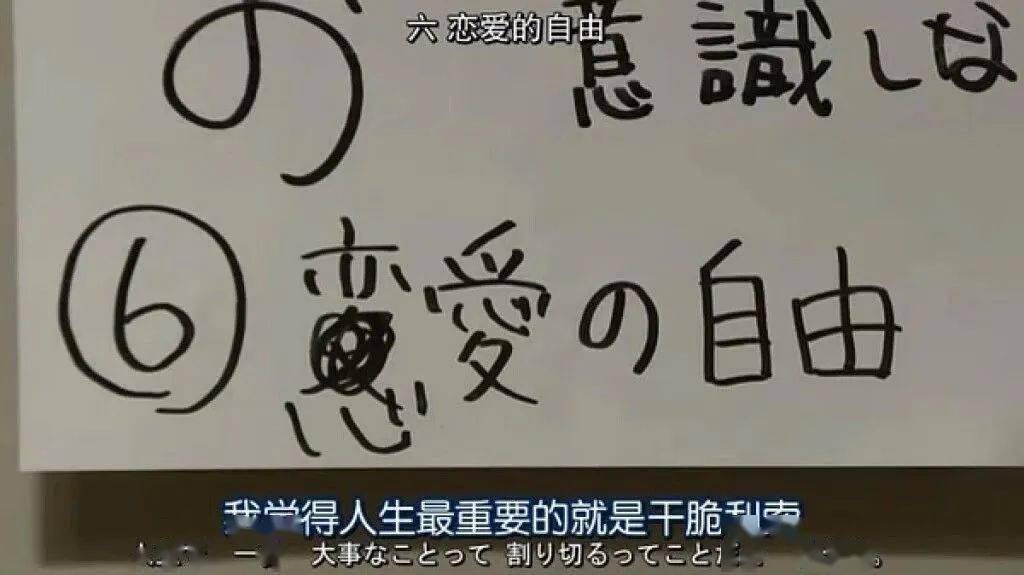 六 恋爱的自由
の 意識しな
⑥ 恋愛の自由
我觉得人生最重要的就是干脆利索
一 大事なことって 割り切るってこと